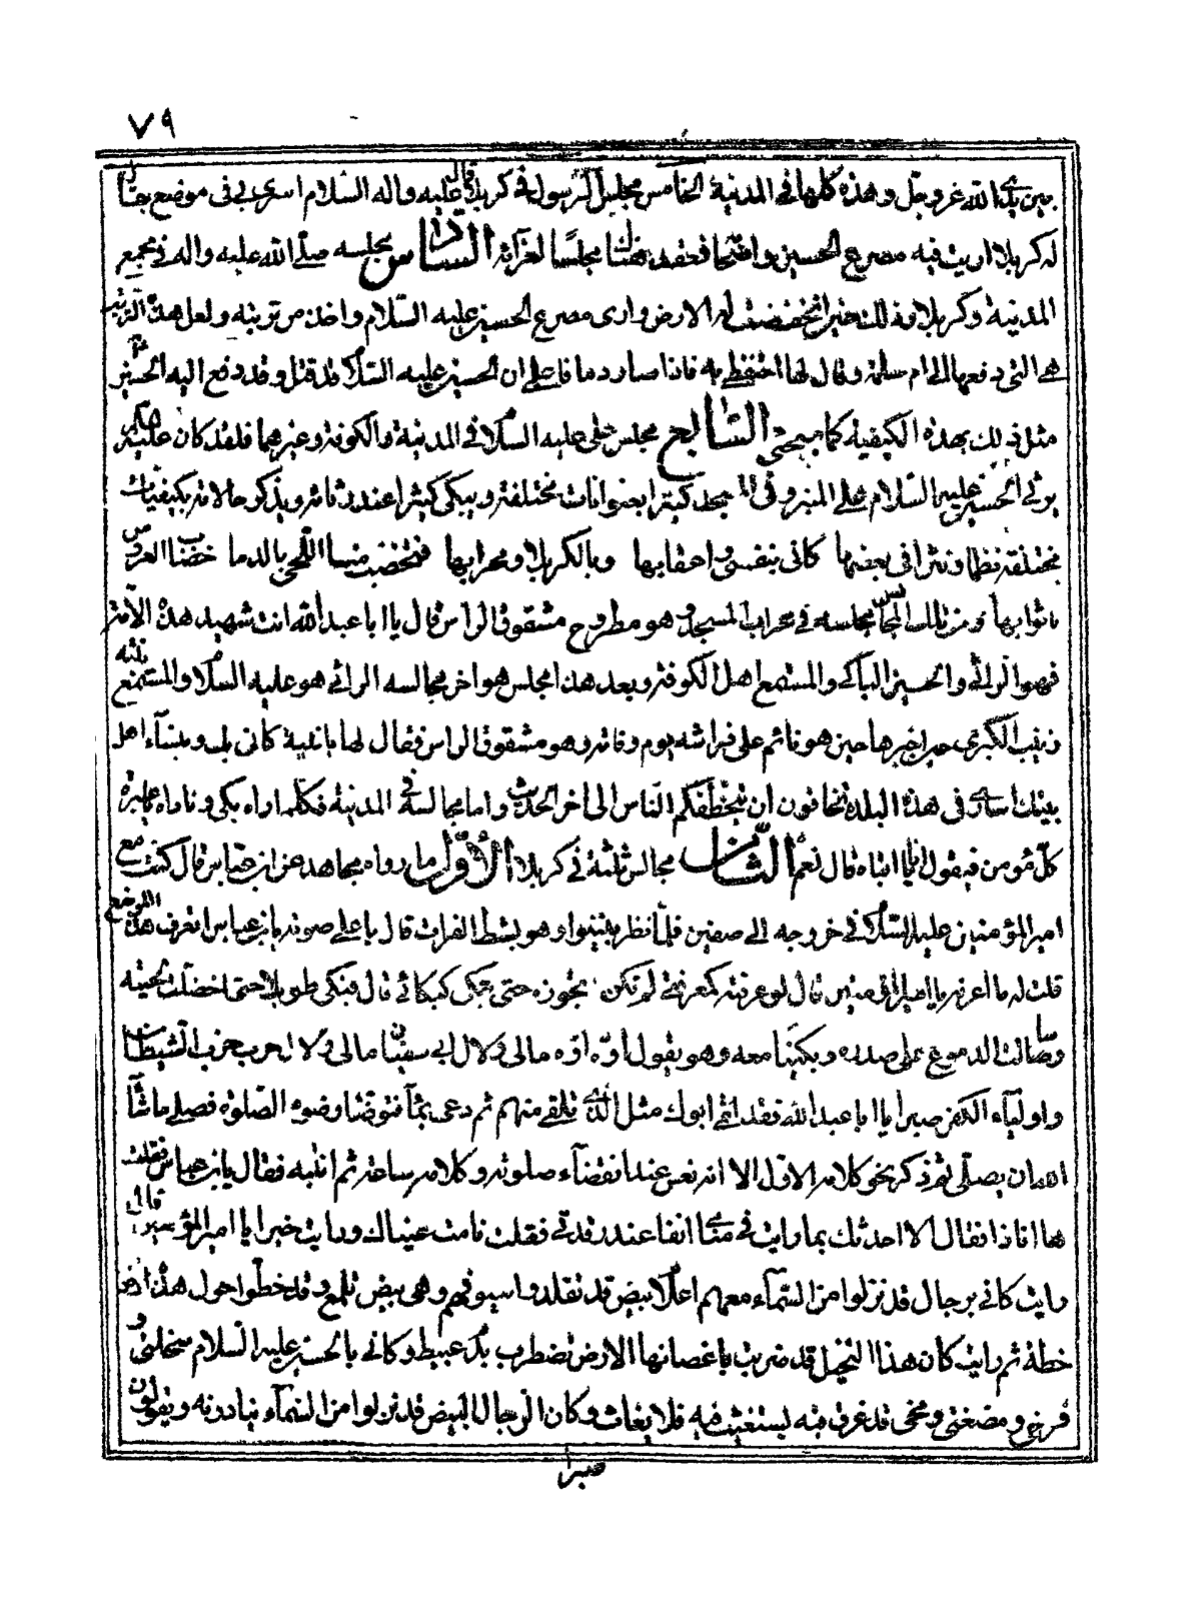 ٧٩
بين يدي الله عز وجل وهذه كلها في المدينة الخامس مجلس الرسول في كربلا قال عليه واله السلام اسري بي في موضع يقال
له كربلا اريت فيه مصرع الحسين واصحابه فعقد هناك مجلسا لعزائه السادس مجلسه صلى الله عليه واله في مجمع
المدينة وكربلا وذلك حين انخفضت له الارض واري مصرع الحسين عليه السلام واخذ من تربته ولعل هذه التربة
هي التي دفعها الى ام سلمة وقال لها احتفظي به فاذا صار دما فاعلمي ان الحسين عليه السلام قد قتل وقد دفع اليه الحسين
مثل ذلك بهذه الكيفية كما سيجئ السابع مجلس علي عليه السلام في المدينة والكوفة وغيرهما فلقد كان عليه السلام
يرثي الحسين عليهما السلام على المنبر وفي المسجد كثيرا بعنوانات مختلفة ويبكي كثيرا عند رثائه ويذكر حالاته بكيفيات
مختلفة نظما ونثرا في بعضها كاني بنفسي واعقابها وبالكربلا ومحرابها فتخضب منا اللحى بالدما خضاب العروس
باثوابها ومن تلك المجالس مجلسه في محراب المسجد وهو مطروح مشقوق الراس قال يا ابا عبد الله انت شهيد هذه الامة
فهو الراثي والحسين الباكي والمستمع اهل الكوفة وبعد هذا مجلس هو اخر مجالسه الراثي هو عليه السلام والمستمع بنته
زينب الكبرى حين اخبرها حين هو نائم على فراشه يوم وفاته وهو مشقوق الراس فقال لها يا بنية كاني بك وبنساء اهل
بيتك اسارى في هذه البلدة تخافون ان يتخطفكم الناس الى اخر الحديث واما مجالسه في المدينة فكلما راه بكى وناداه يا عبرة
كل مؤمن فيقول انا يا ابتاه قال نعم الثامن مجالس ثلثة في كربلا الاول ما رواه مجاهد عن ابن عباس قال كنت مع
امير المؤمنين عليه السلام في خروجه الى صفين فلما نظر بنينوا وهو بشط الفرات قال باعلى صوته يابن عباس اتعرف هذا الموضع
قلت له ما اعرفه يا امير المؤمنين قال لو عرفته كمعرفتي لم تكن تجوزه حتى تبكي كبكائي قال فبكى طويلا حتى اخضلت لحيته
وسالت الدموع على صدره وبكينا معه وهو يقول اوه اوه مالي ولال ابي سفيان مالي ولال حرب حزب الشيطان
واولياء الكفر صبرا يا ابا عبد الله فقد لقي ابوك مثل الذي تلقى منهم ثم دعى بماء فتوضأ وضوء الصلوة فصلى ما شاء
الله ان يصلي ثم ذكر نحو كلامه الاول الا انه نعس عند انقضاء صلوته وكلامه ساعة ثم انتبه فقال يابن عباس فقلت
ها انا ذا فقال الا احدثك بما رايت في منامي انفا عند رقدتي فقلت نامت عيناك ورايت خيرا يا امير المؤمنين قال
رايت كاني برجال قد نزلوا من السماء معهم اعلام بيض قد تقلدوا سيوفهم وهي بيض تلمع وقد خطوا حول هذه الارض
خطة ثم رايت كان هذا النخيل قد ضربت باغصانها الارض تضطرب بدم عبيط وكاني بالحسين عليه السلام سخلتي و
فرخي ومضغتي ومخي قد غرق فيه يستغيث فيه فلا يغاث وكان الرجال البيض قد نزلوا من السماء ينادونه ويقولون
صبرا